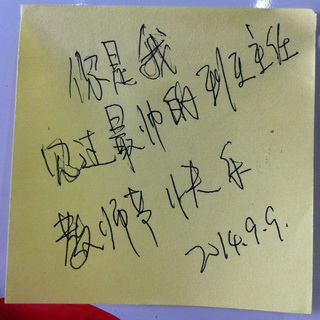 你是我
见过最帅的班主任
教师节快乐
2014.9.9.